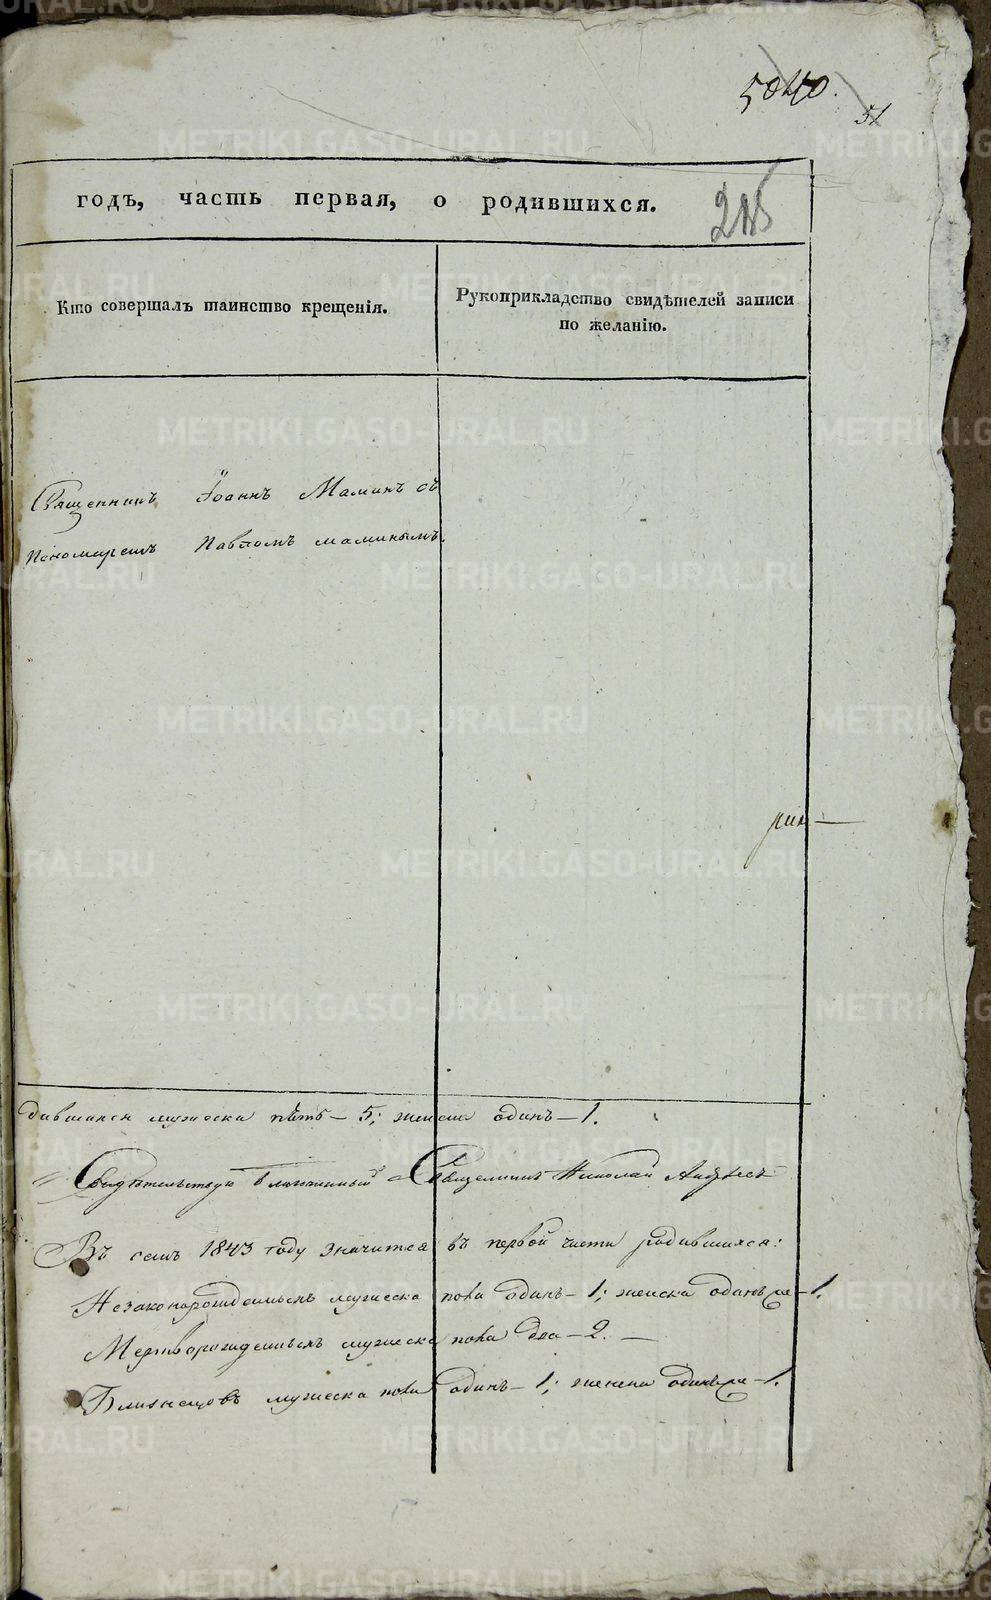 5040.
51
годъ, часть первая, о родившихся.
215
Кто совершалъ таинство крещенія.
Рукоприкладство свидѣтелей записи
по желанію.
Священникъ Іоаннъ Маминъ съ
Пономаремъ Павломъ маминымъ.
дившихся мужеска пять – 5; женска одинъ – 1.
Свидѣтельствую Священникъ Николай
Въ семъ 1843 году значится въ первой части родившихся:
Незаконорожденныхъ мужеска пола одинъ – 1; женска – 1.
Мертворожденныхъ мужеска пола два – 2. –
Близнецовъ мужеска пола одинъ – 1; женска – 1.
METRIKI.GASO-URAL.RU